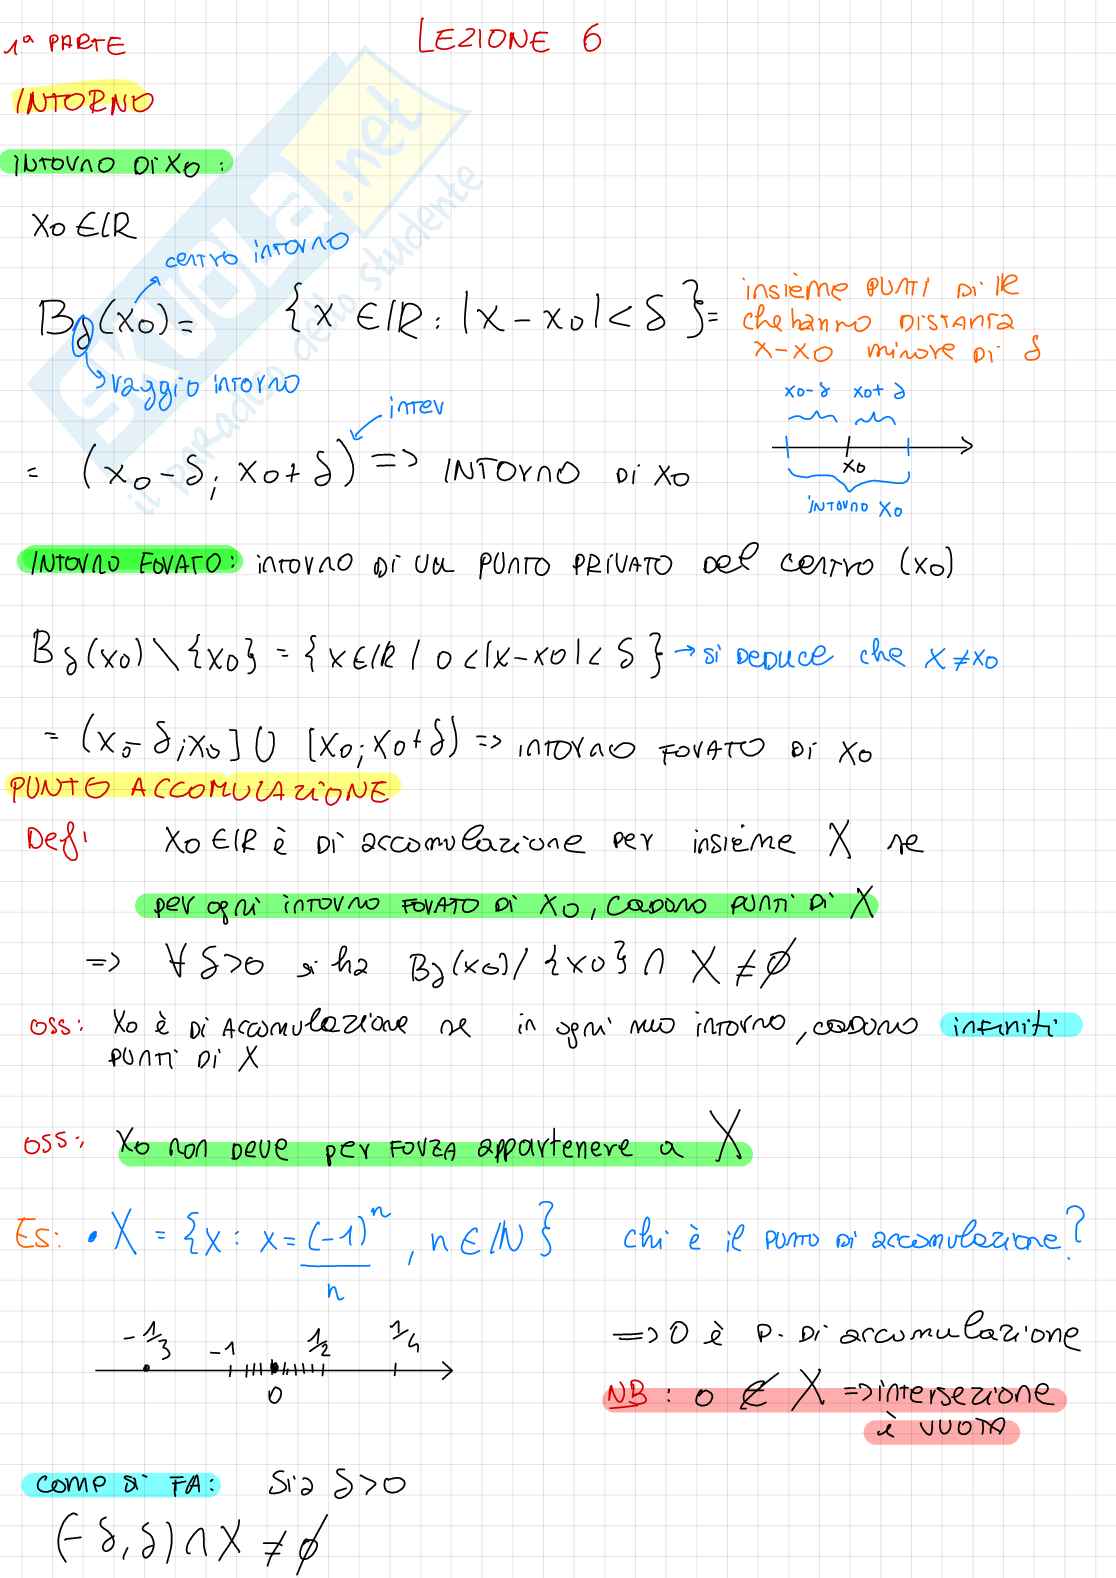 1ª PARTE
LEZIONE 6
INTORNO
INTORNO DI X0 :
X0 ∈ IR
centro intorno
Bδ(x0) = {x ∈ IR : |x - x0| < δ} =
insieme PUNTI DI IR
che hanno DISTANZA
X-X0 minore DI δ
raggio intorno
inter
= (x0 - δ ; x0 + δ) => INTORNO DI X0
x0-δ x0+δ
x0
INTORNO X0
INTORNO FORATO: INTORNO DI UN PUNTO PRIVATO Del centro (x0)
Bδ(x0) \ {x0} = {x ∈ IR / 0 < |x-x0| < δ} → si DEDUCE che X ≠ X0
= (x0 - δ ; x0] U [x0 ; x0+δ) => INTORNO FORATO DI X0
PUNTO ACCOMULAZIONE
Def:
X0 ∈ IR è DI accomulazione per insieme X se
per ogni intorno FORATO DI X0, cadono PUNTI DI X
=> ∀ δ>0 si ha Bδ(x0) / {x0} ∩ X ≠ ∅
OSS: X0 è DI Accomulazione se in ogni suo intorno, cadono infiniti
PUNTI DI X
OSS: X0 non DEVE per FORZA appartenere a X
Es: • X = {x : x = (-1)^n / n , n ∈ IN} chi è il PUNTO DI accomulazione?
-1/3 -1 1/2 1/4
0
=> 0 è P. DI accumulazione
NB : 0 ∉ X => intersezione
è VUOTA
COME SI FA: Sia δ > 0
(-δ, δ) ∩ X ≠ ∅
SKUOLA.net
il paradiso dello studente